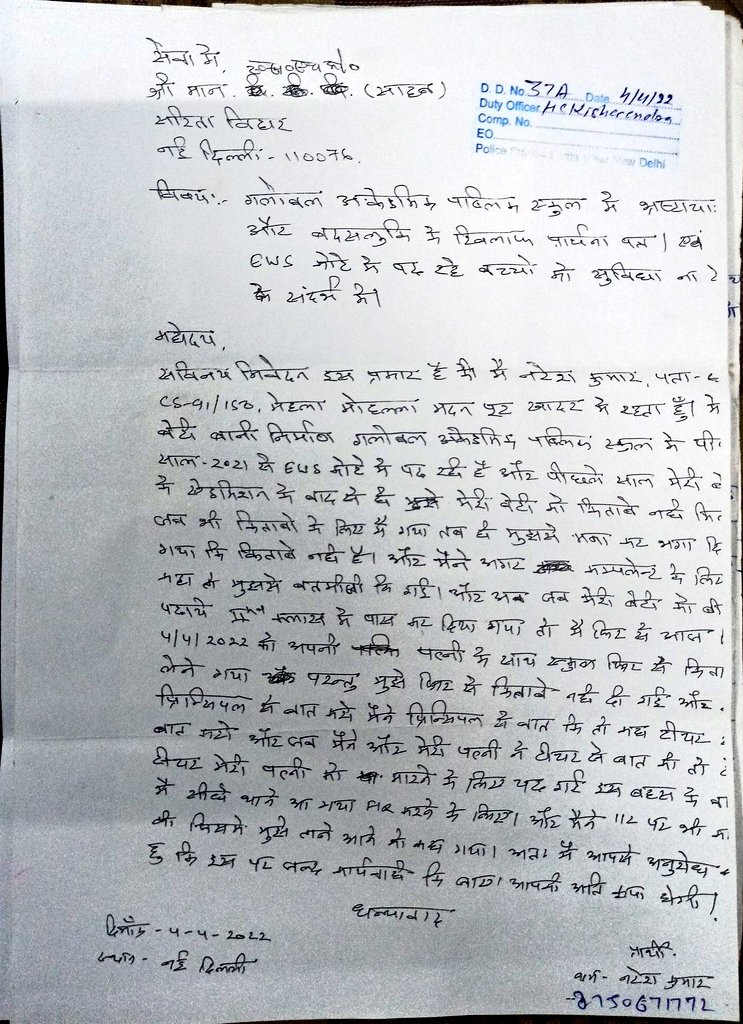 सेवा में, एस०एच०ओ०
श्री मान (साहब)
सरिता विहार
नई दिल्ली:- 110076.
D. D. No. 37A Date 4/4/22
Duty Officer HC Kisharendra
Comp. No.
EO
Police New Delhi
विषय:- गलोबल अकेडमिक पब्लिक स्कुल मे भ्रष्टाचा
और बदसलुकि के खिलाफ प्रार्थना पत्र। एवं
EWS कोटे मे पढ रहे बच्चो को सुविधा ना दे
के संदर्भ मे।
महोदय,
सविनय निवेदन इस प्रकार है की मै नरेश कुमार, पता-
CS-91/15B, मेहला मोहल्ला मदन पुर खादर मे रहता हूँ। मे
बेटी बानी निर्माण गलोबल अकेडमिक पब्लिक स्कुल मे पी
साल-2021 से EWS कोटे मे पढ रही है और पीछले साल मेरी बे
के एडमिशन के बाद से ही मेरी बेटी को किताबे नही मि
जब भी किताबो के लिए मै गया तब ही मुझसे मना कर भगा दि
गया कि किताबे नही है। और मैने अगर कम्पलेन्ट के लिए
कहा तो मुझसे बतमीजी कि गई। और अब जब मेरी बेटी को बी
पढाये IInd क्लास मे पास कर दिया गया तो मै फिर से आज
4/4/2022 को अपनी पत्नी के साथ स्कुल फिर से किता
लेने गया परन्तु मुझे फिर से किताबे नही दी गई और
प्रिन्सिपल से बात करो मैने प्रिन्सिपल से बात कि तो कहा टीचर
बात करो और जब मैने और मेरी पत्नी ने टीचर से बात की तो
टीचर मेरी पत्नी को मारने के लिए चढ गई इस बहस के बा
मै सीधे थाने आ गया FIR करने के लिए। और मैने 112 पर भी का
की जिसमे मुझे थाने आने को कहा गया। अतः मै आपसे अनुरोध
हु कि इस पर जल्द कार्यवाही कि जाए। आपकी अति कृपा होगी।
धन्यावाद
दिनाँक - 4-4-2022
स्थान - नई दिल्ली
प्रार्थी.
नाम - नरेश कुमार
-8750671772